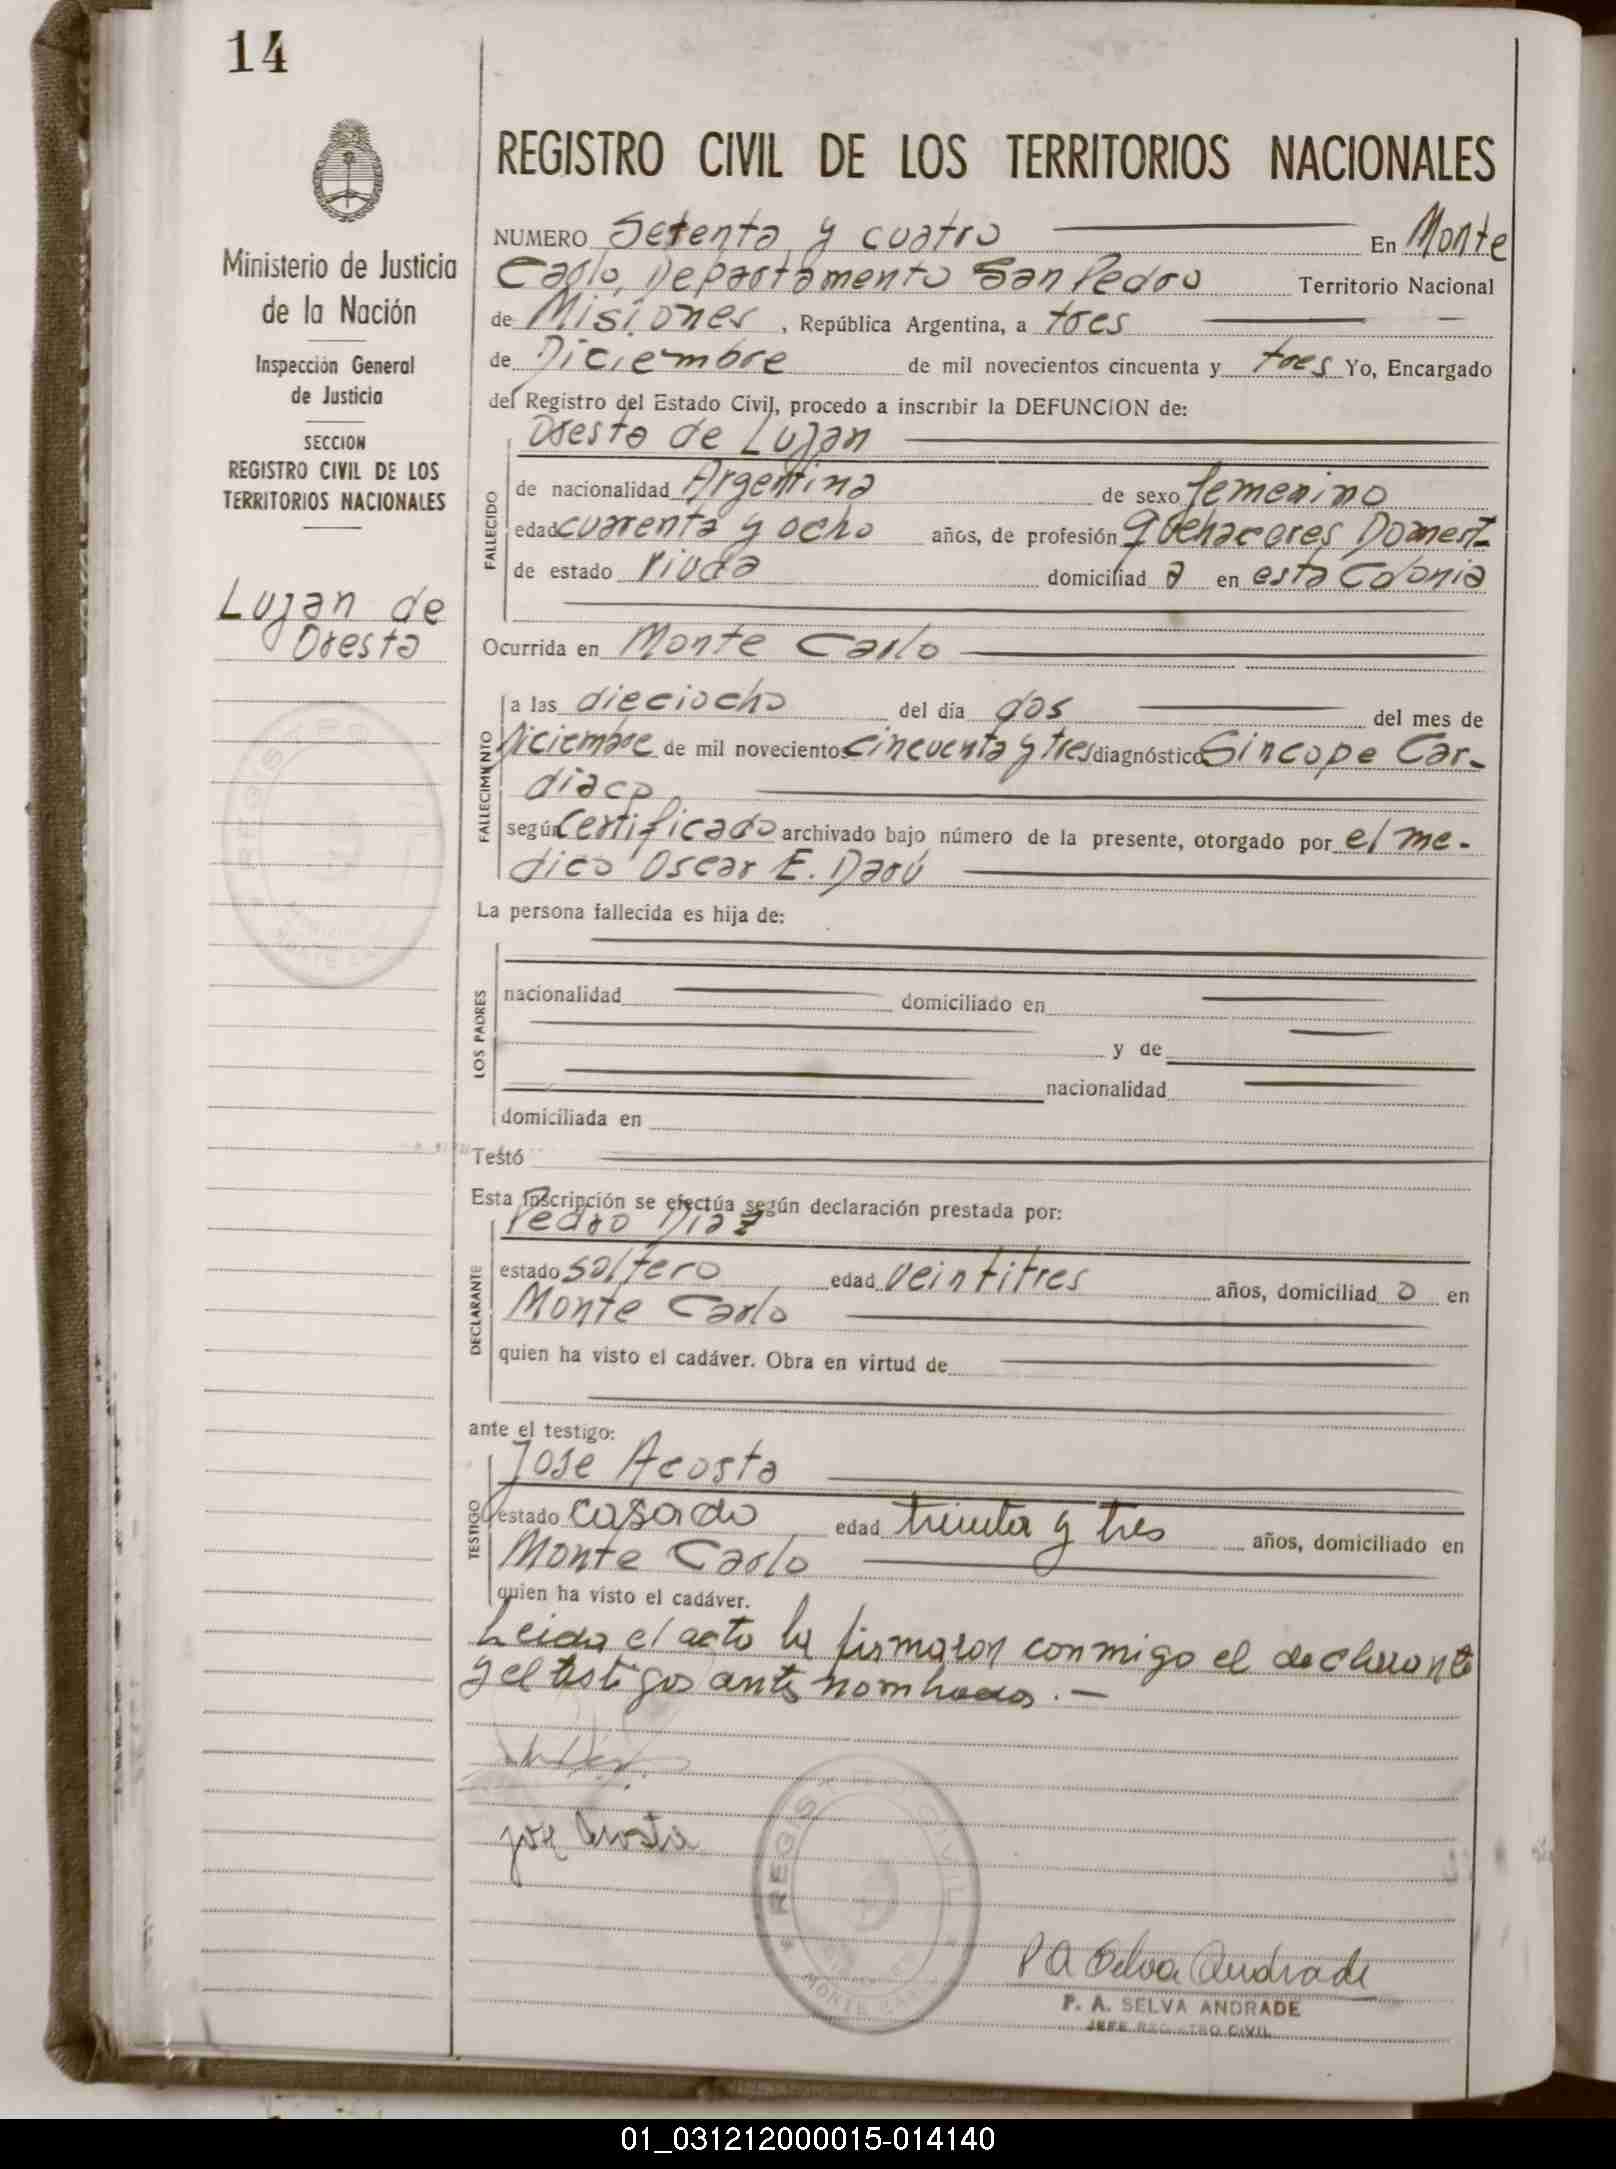 14
Ministerio de Justicia
de la Nación
Inspección General
de Justicia
SECCION
REGISTRO CIVIL DE LOS
TERRITORIOS NACIONALES
Lujan de
Oresta
REGISTRO CIVIL DE LOS TERRITORIOS NACIONALES
NUMERO Setenta y cuatro En Monte
Carlo, Departamento San Pedro Territorio Nacional
de Misiones , República Argentina, a tres
de Diciembre de mil novecientos cincuenta y tres Yo, Encargado
del Registro del Estado Civil, procedo a inscribir la DEFUNCION de:
Oresta de Lujan
FALLECIDO
de nacionalidad Argentina de sexo femenino
edad cuarenta y ocho años, de profesión quehaceres Domest-
de estado viuda domiciliad a en esta Colonia
Ocurrida en Monte Carlo
FALLECIMIENTO
a las dieciocho del día dos del mes de
Diciembre de mil novecientos cincuenta y tres diagnóstico Sincope Car-
diaco
según Certificado archivado bajo número de la presente, otorgado por el me-
dico Oscar E. Darú
La persona fallecida es hija de:
LOS PADRES
nacionalidad domiciliado en
y de
nacionalidad
domiciliada en
Testó
Esta inscripción se efectúa según declaración prestada por:
Pedro Diaz
DECLARANTE
estado soltero edad veintitres años, domiciliad o en
Monte Carlo
quien ha visto el cadáver. Obra en virtud de
ante el testigo:
Jose Acosta
TESTIGO
estado casado edad treinta y tres años, domiciliado en
Monte Carlo
quien ha visto el cadáver.
Leida el acta la firmaron conmigo el declarante
y el testigos antes nombrados.—
Jose Acosta
REGISTRO CIVIL
MONTE CARLO
P A Selva Andrade
P. A. SELVA ANDRADE
JEFE REGISTRO CIVIL
01_031212000015-014140